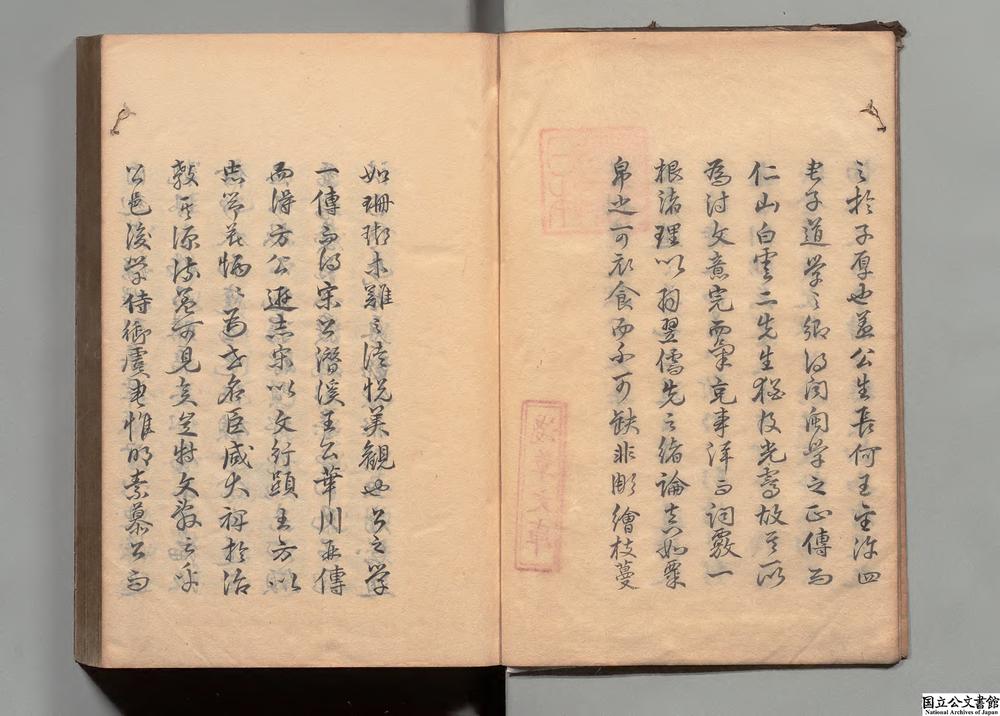 之於子厚也蓋公生長何王金許四
君子道學之鄉得聞閩學之正傳而
仁山白雲二先生猶及光霽故其所
為詩文意完而氣充事詳而詞覈一
根諸理以羽翼儒先之緒論真如粟
帛之可衣食而不可缺非彫繪枝蔓
淺草文庫
如珊瑚木難之徒悅美觀也公之學
一傳而得宋公潛溪王公華川再傳
而得方公遜志宋以文行顯王方以
忠節著炳炳為世名臣咸大裨於治
教其源流蓋可見矣豈特文辭云乎
公邑後學侍御虞君惟明素慕公而
国立公文書館
National Archives of Japan